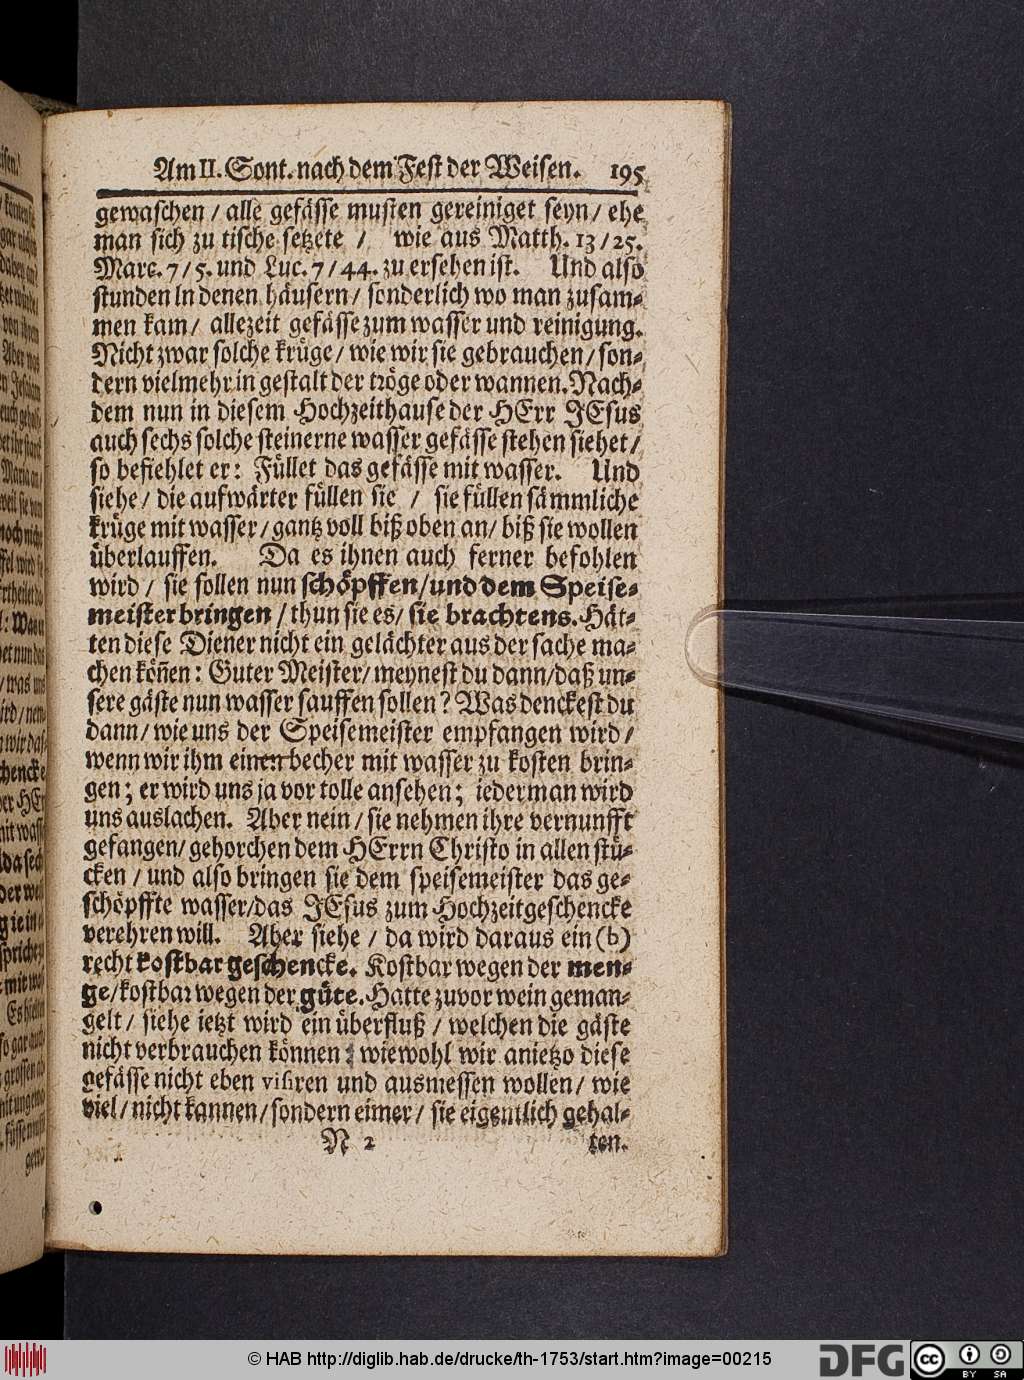 Am II. Sont. nach dem Fest der Weisen. 195
gewaschen / alle gefässe musten gereiniget seyn / ehe
man sich zu tische setzete / wie aus Matth. 13 / 25.
Marc. 7 / 5. und Luc. 7 / 44. zu ersehen ist. Und also
stunden in denen häusern / sonderlich wo man zusam-
men kam / allezeit gefässe zum wasser und reinigung.
Nicht zwar solche krüge / wie wir sie gebrauchen / son-
dern vielmehr in gestalt der tröge oder wannen. Nach-
dem nun in diesem Hochzeithause der HErr JEsus
auch sechs solche steinerne wasser gefässe stehen siehet /
so befiehlet er: Füllet das gefässe mit wasser. Und
siehe / die aufwärter füllen sie / sie füllen sämmliche
krüge mit wasser / gantz voll biß oben an / biß sie wollen
überlauffen. Da es ihnen auch ferner befohlen
wird / sie sollen nun schöpffen / und dem Speise-
meister bringen / thun sie es / sie brachtens. Hät-
ten diese Diener nicht ein gelächter aus der sache ma-
chen kön̄en: Guter Meister / meynest du dann / daß un-
sere gäste nun wasser sauffen sollen? Was denckest du
dann / wie uns der Speisemeister empfangen wird /
wenn wir ihm einen becher mit wasser zu kosten brin-
gen; er wird uns ja vor tolle ansehen; iederman wird
uns auslachen. Aber nein / sie nehmen ihre vernunfft
gefangen / gehorchen dem HErrn Christo in allen stü-
cken / und also bringen sie dem speisemeister das ge-
schöpffte wasser / das JEsus zum Hochzeitgeschencke
verehren will. Aber siehe / da wird daraus ein (b)
recht kostbar geschencke. Kostbar wegen der men-
ge / kostbar wegen der güte. Hatte zuvor wein geman-
gelt / siehe ietzt wird ein überfluß / welchen die gäste
nicht verbrauchen können: wiewohl wir anietzo diese
gefässe nicht eben visiren und ausmessen wollen / wie
viel / nicht kannen / sondern eimer / sie eigentlich gehal-
N 2 ten.
© HAB http://diglib.hab.de/drucke/th-1753/start.htm?image=00215
DFG cc BY SA